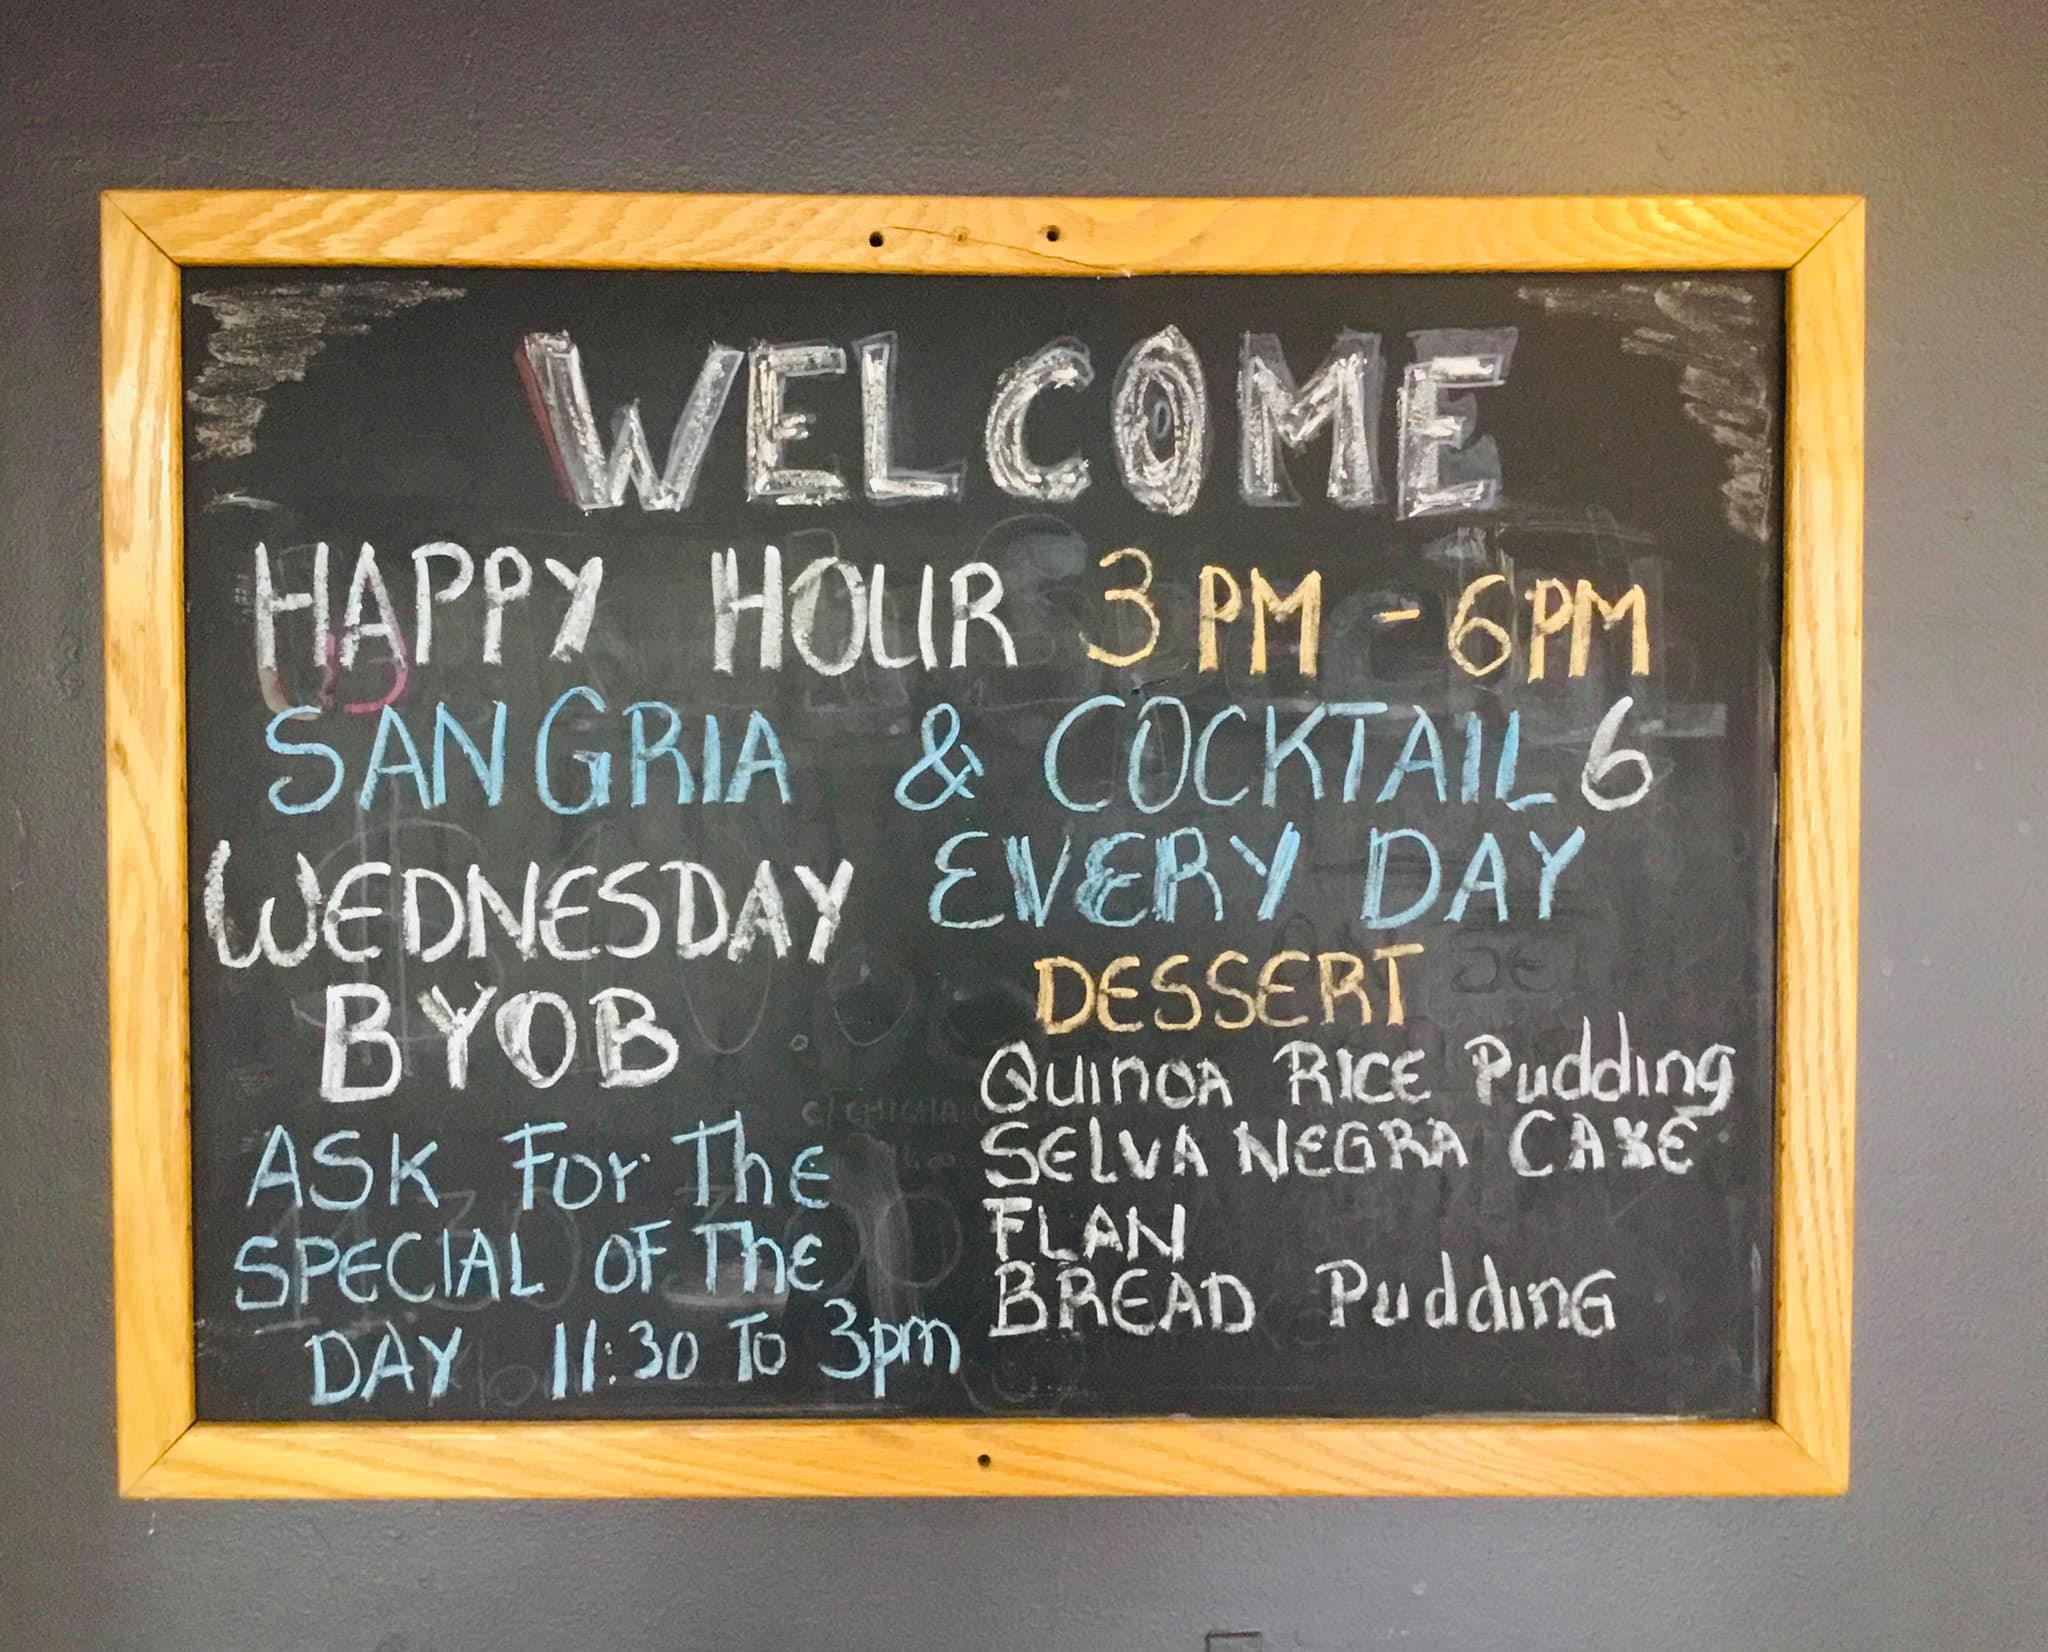 WELCOME
HAPPY HOUR 3PM - 6PM
SANGRIA & COCKTAIL 6
EVERY DAY
WEDNESDAY
BYOB
ASK For The
SPECIAL OF The
DAY 11:30 To 3pm
DESSERT
QuinoA RICE Pudding
SELVA NEGRA CAKE
FLAN
BREAD PuddinG